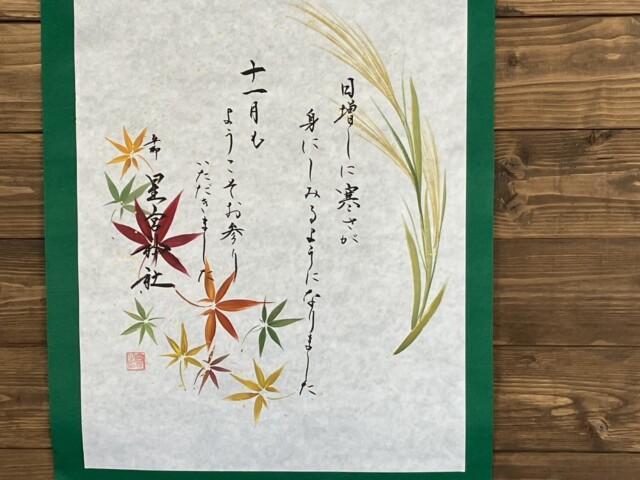 日増しに寒さが
身にしみるようになりました
十一月も
ようこそお参り
いただきました
星宮神社